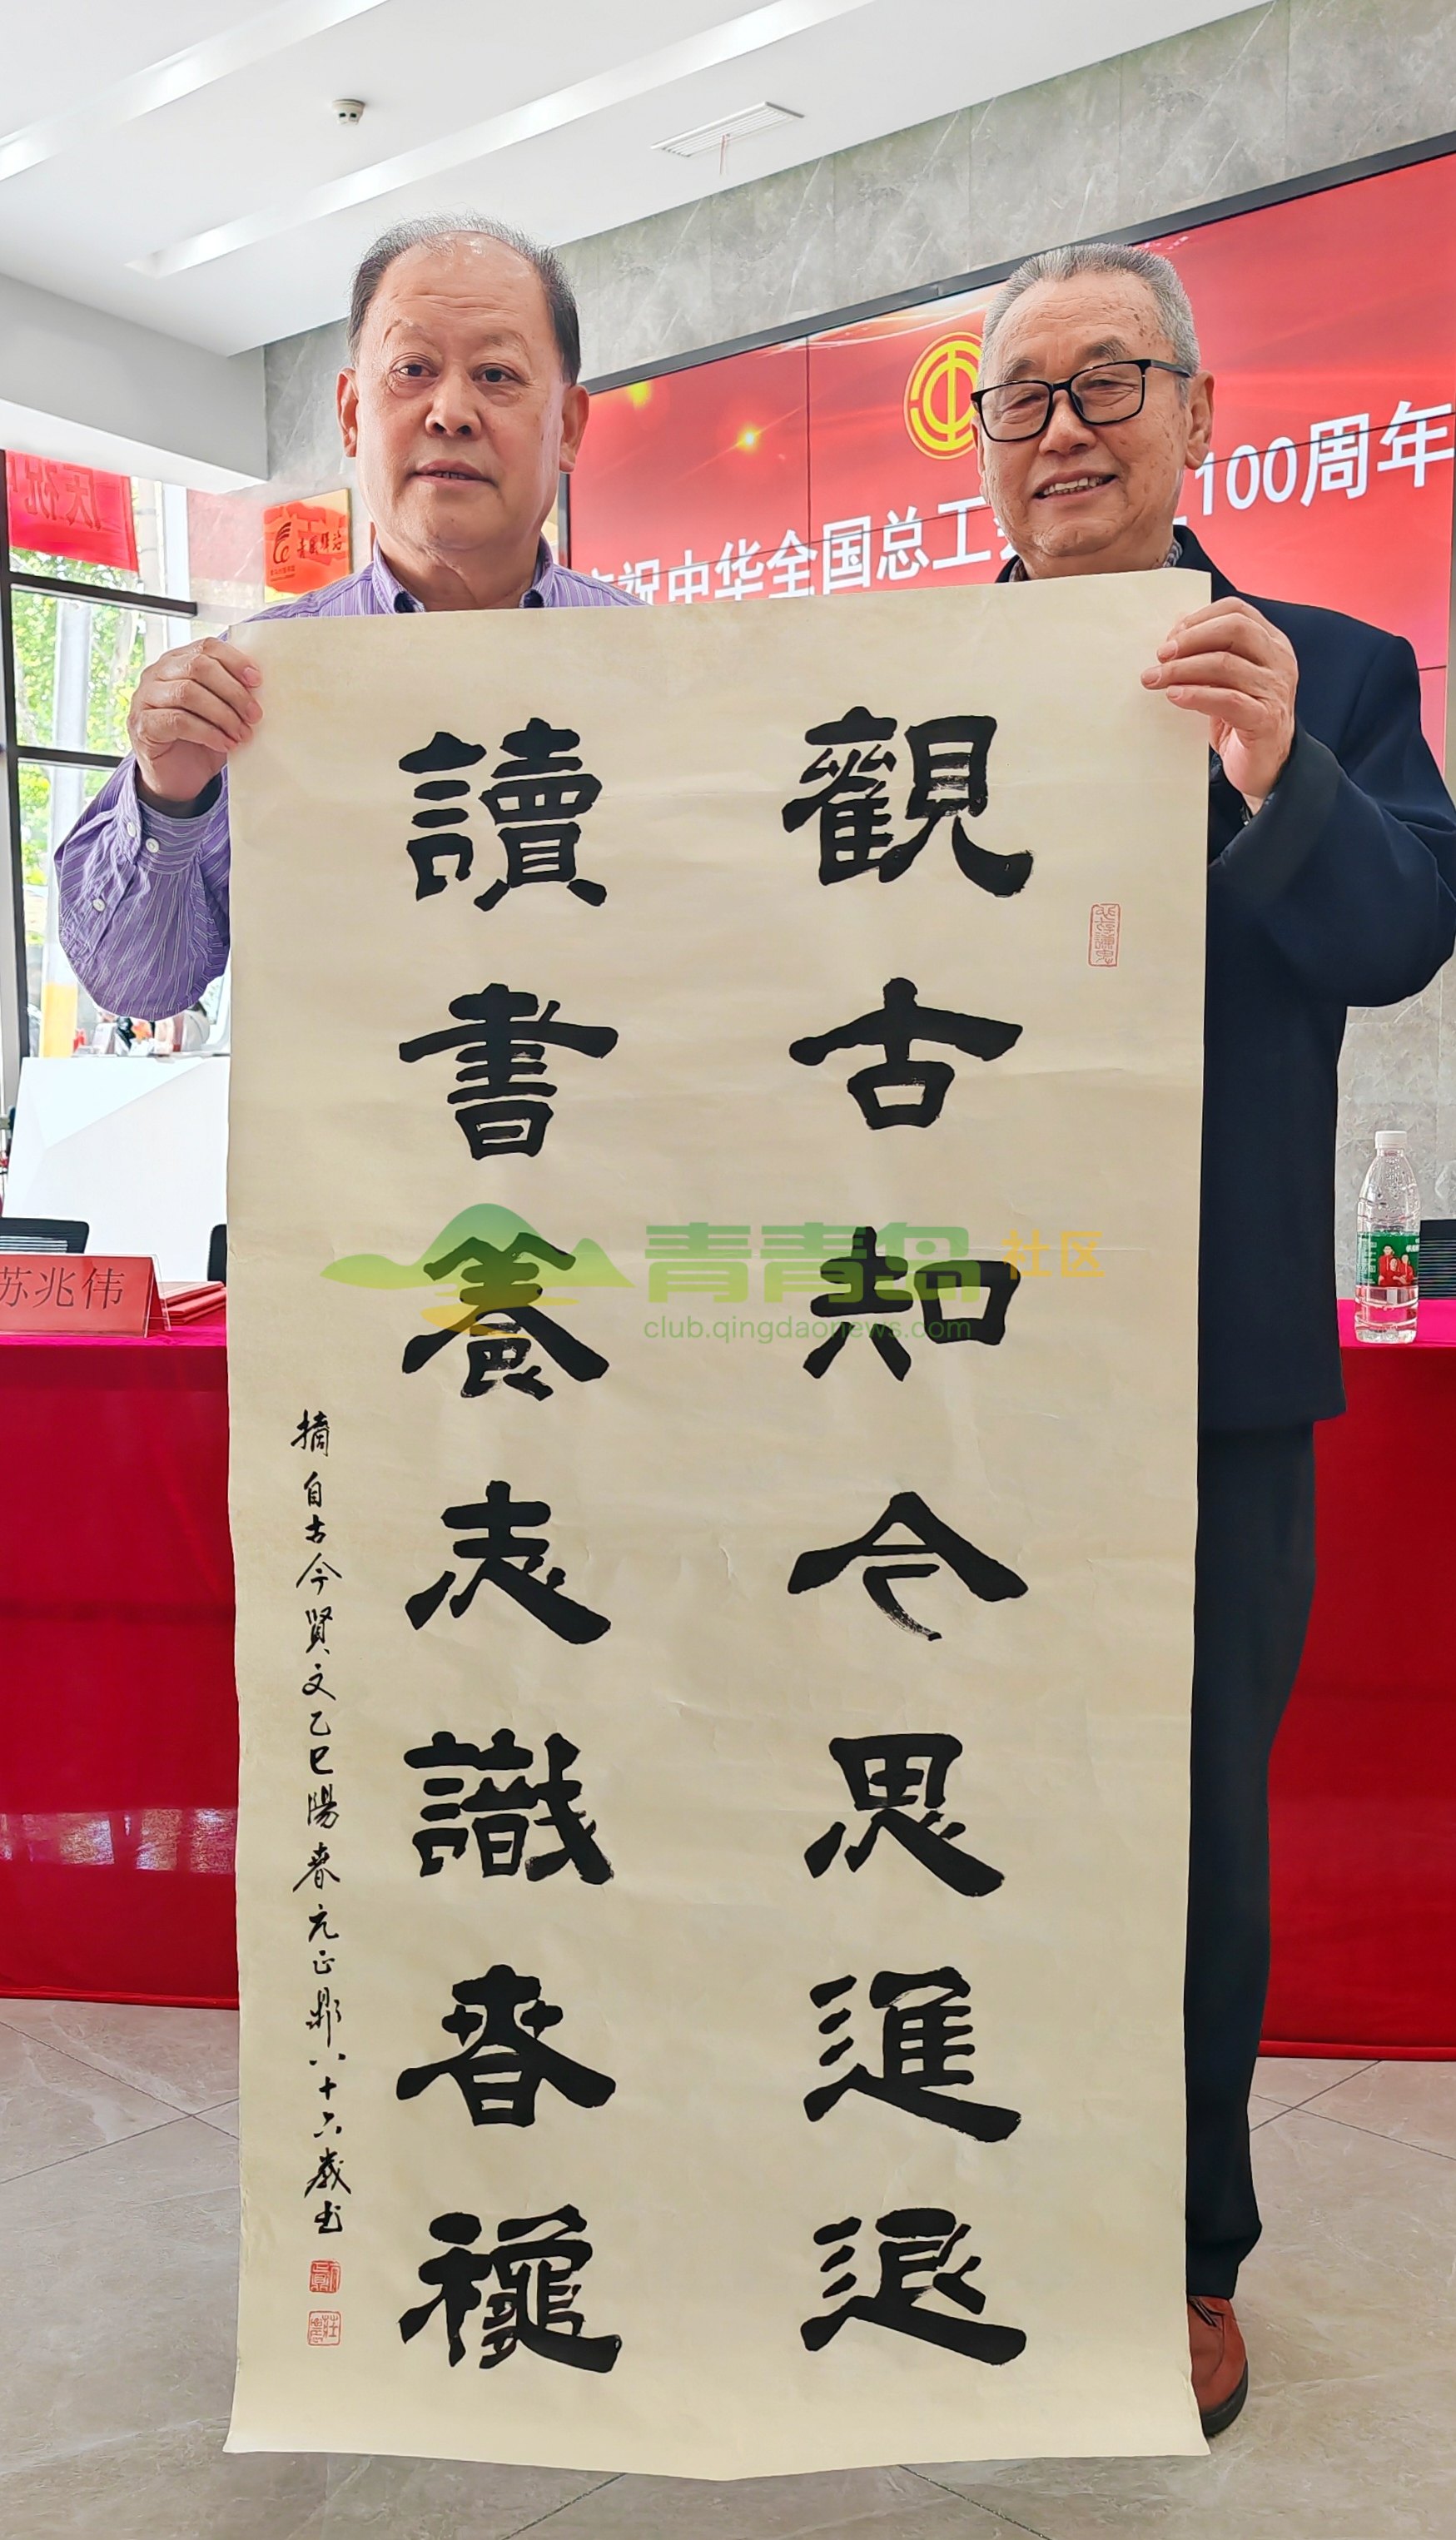 庆祝
庆祝中华全国总工
100周年
觀古知今思進退
讀書養志識春龝
摘自古今賢文乙巳陽春亢正鼎八十六歲书
青青岛社区
club.qingdaonews.com
苏兆伟